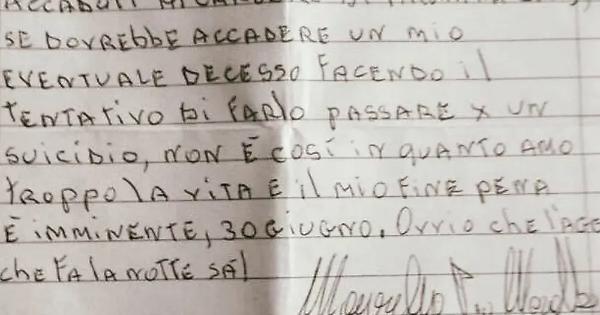 SE DOVREBBE ACCADERE UN MIO
EVENTUALE DECESSO FACENDO il
TENTATIVO DI FARlO PASSARE X UN
SUICIDIO, NON È COSÍ IN QUANTO AMO
TROPPO lA VITA E il MIO FINE PENA
È IMMINENTE, 30 GIUGNO. OVVIO CHE l'AGE
CHE FA lA NOTTE SA!